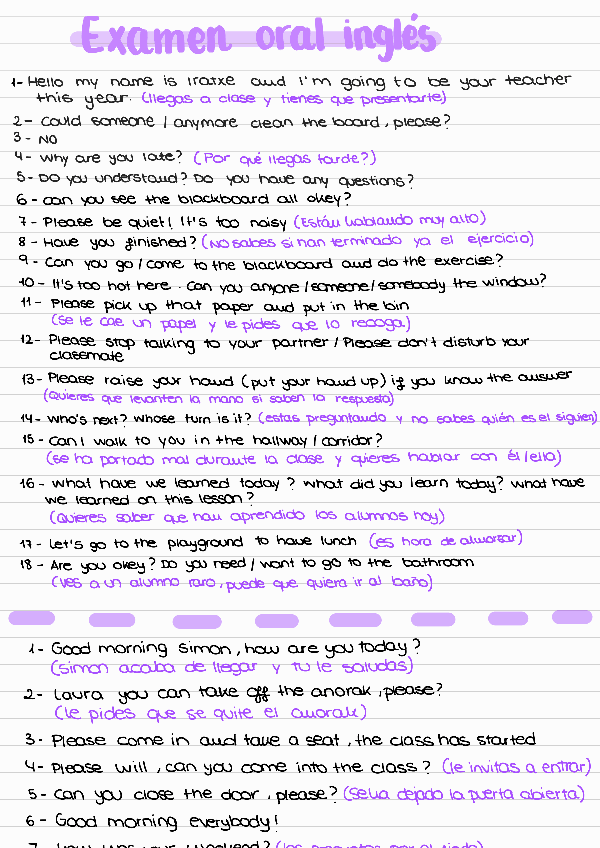 Examen oral inglés
1- Hello my name is Iratxe and I'm going to be your teacher
this year. (llegas a clase y tienes que presentarte)
2- Could someone / anymore clean the board, please?
3- NO
4- Why are you late? (Por qué llegas tarde?)
5- Do you understand? Do you have any questions?
6- can you see the blackboard all okey?
7- Please be quiet! It's too noisy (Están hablando muy alto)
8- Have you finished? (No sabes si han terminado ya el ejercicio)
9- Can you go / come to the blackboard and do the exercise?
10- It's too hot here. Can you anyone / someone / somebody the window?
11- Please pick up that paper and put in the bin
(Se le cae un papel y le pides que lo recoga)
12- Please stop talking to your partner / Please don't disturb your
classmate
13- Please raise your hand (put your hand up) if you know the answer
(Quieres que levanten la mano si saben la respuesta)
14- Who's next? Whose turn is it? (estas preguntando y no sabes quién es el siguien)
15- Can I walk to you in the hallway / corridor?
(se ha portado mal durante la clase y quieres hablar con él / ella)
16- What have we learned today? What did you learn today? What have
we learned on this lesson?
(Quieres saber que han aprendido los alumnos hoy)
17- Let's go to the playground to have lunch (es hora de almorzar)
18- Are you okey? Do you need / want to go to the bathroom
(Ves a un alumno raro, puede que quiera ir al baño)
1- Good morning Simon, how are you today?
(Simon acaba de llegar y tu le saludas)
2- Laura you can take off the anorak, please?
(le pides que se quite el anorak)
3- Please come in and take a seat, the class has started
4- Please will, can you come into the class? (le invitas a entrar)
5- Can you close the door, please? (Se ha dejado la puerta abierta)
6- Good morning everybody!
7- How was your weekend?